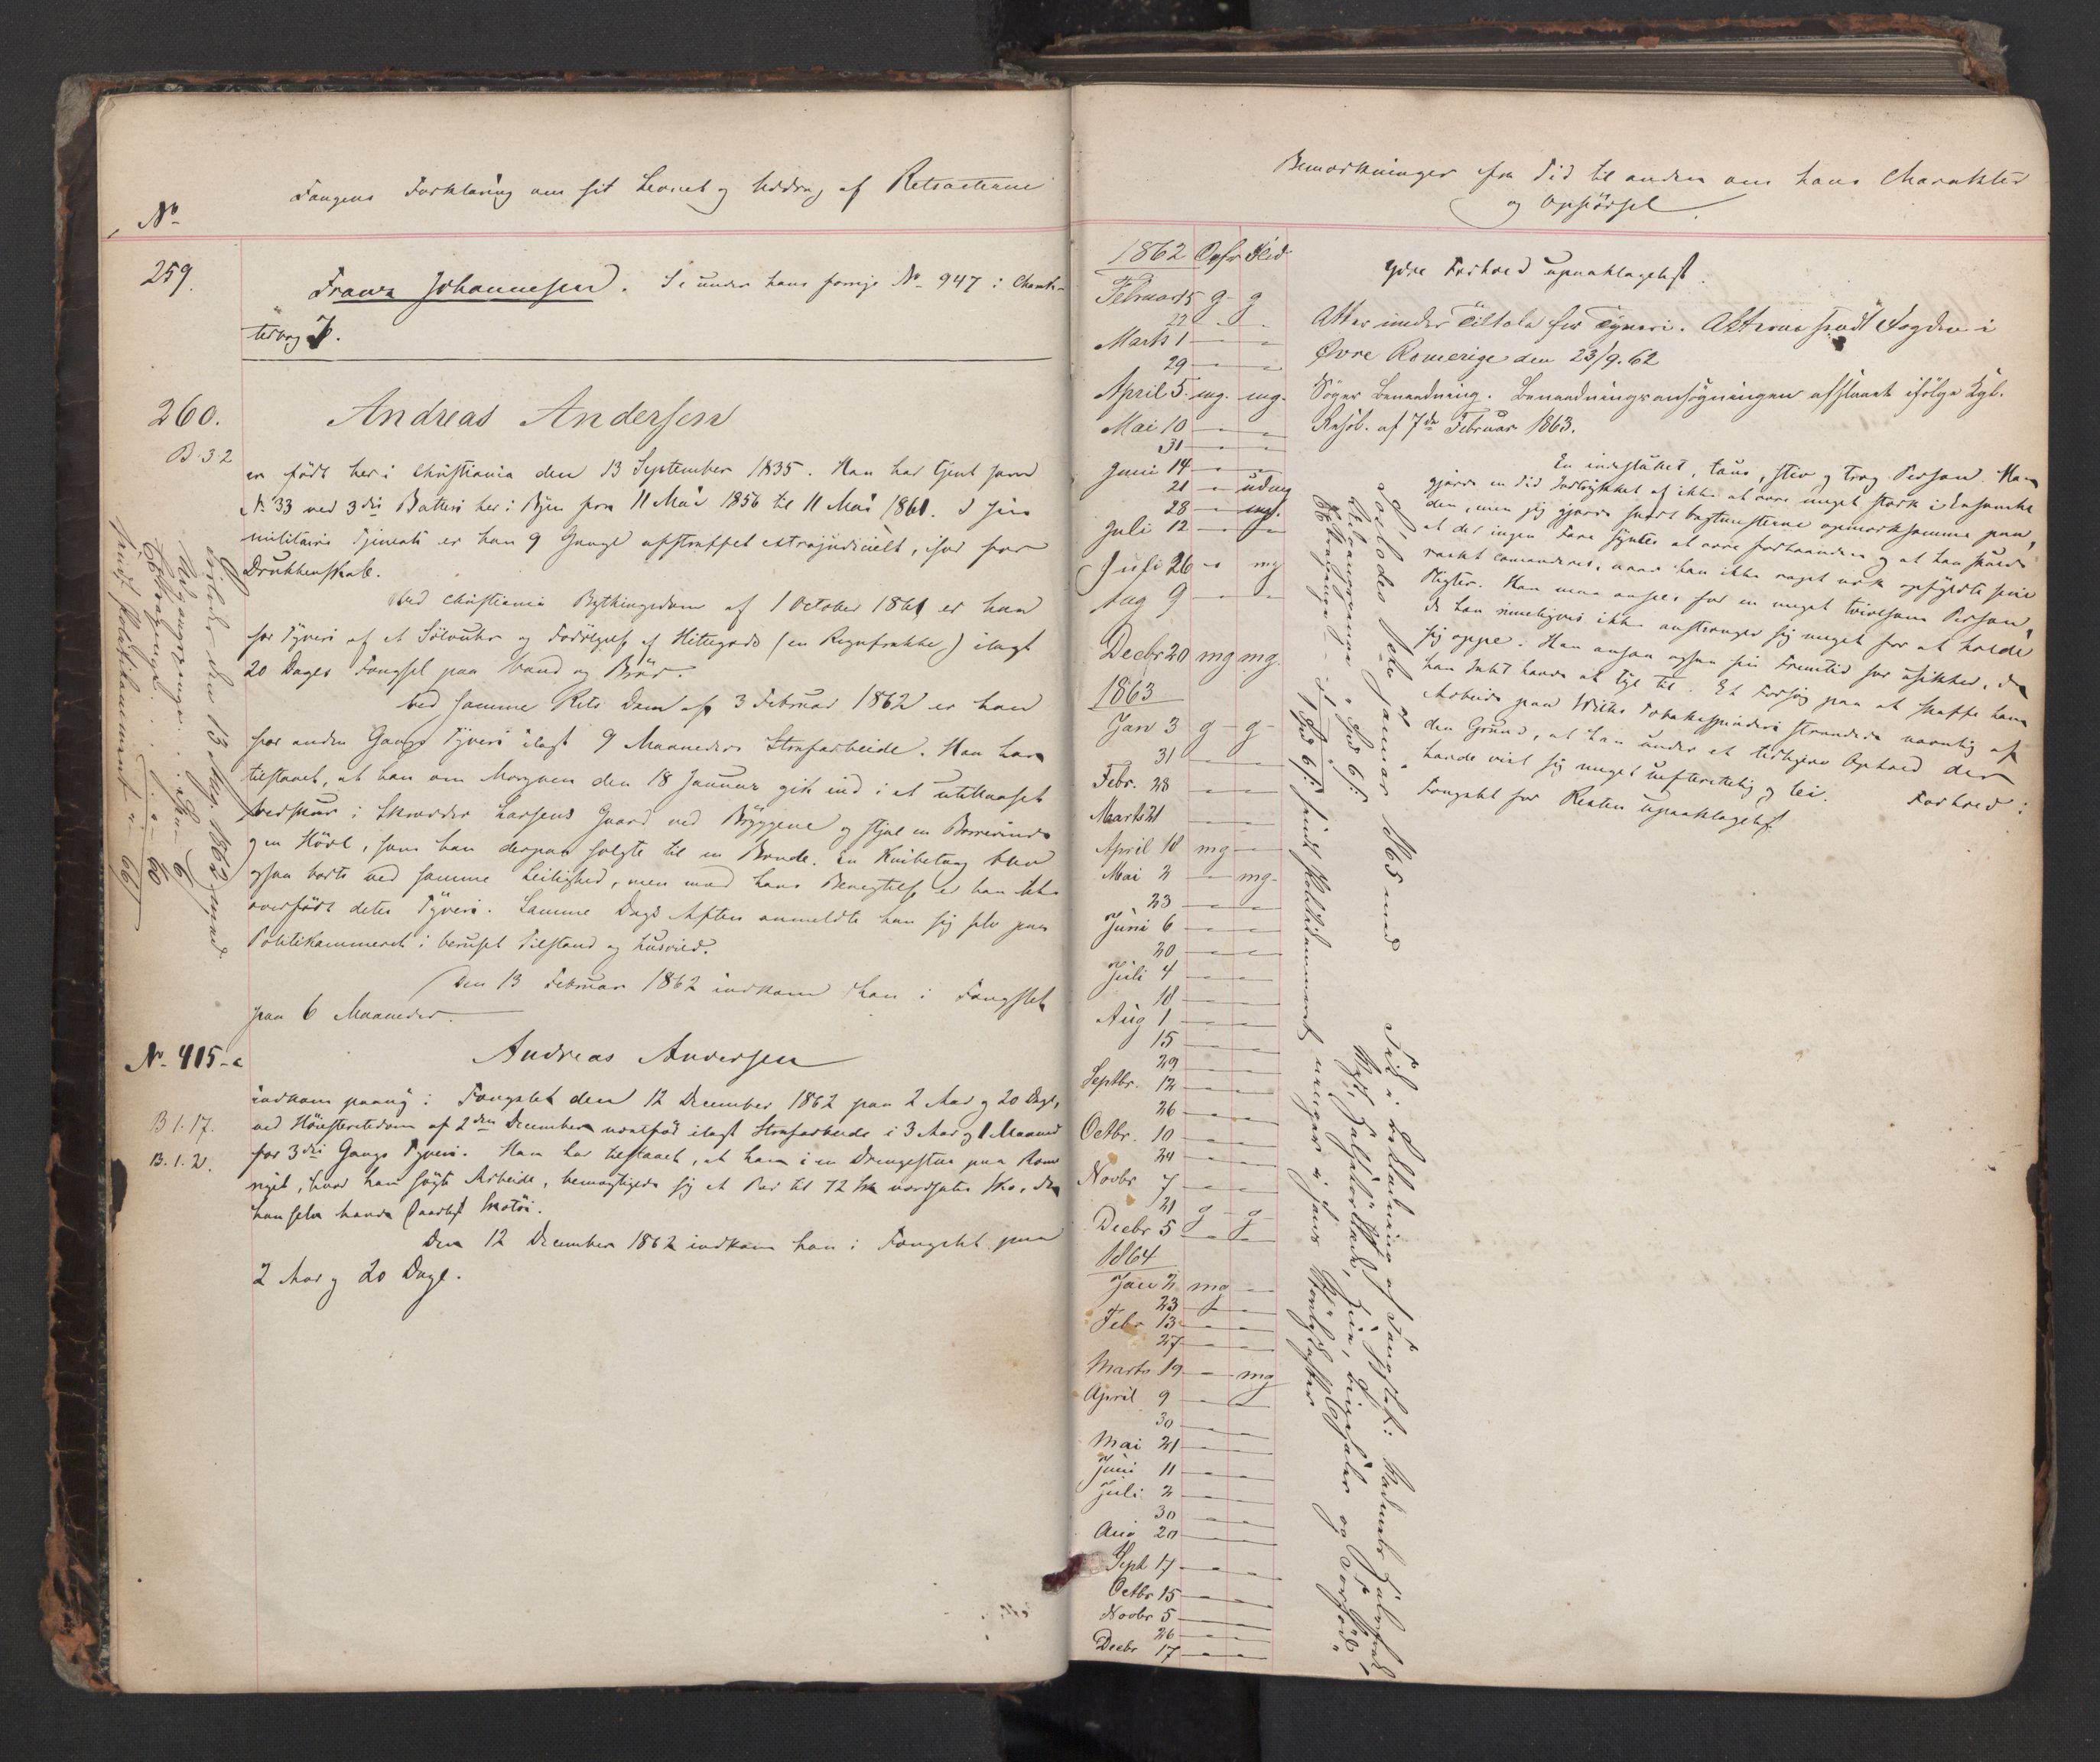 No
Fangens Forklaring om sit Levnet og Uddrag af Retsacterne
259.
Franz Johannesen. Se under hans forrige No 947 i Charak-
terbog 7.
260.
B 32
Andreas Andersen
er født her i Christiania den 13 September 1835. Han har tjent som
No 33 ved 3die Batteri her i Byen fra 11 Mai 1856 til 11 Mai 1861. I sin
militaire Tjeneste er han 9 Gange afstraffet extrajudicielt, især for
Drukkenskab.
Ved Christiania Bythingsdom af 1 October 1861 er han
for Tyveri af et Sølvuhr og Fordølgelse af Hittegods (en Regnfrakke) ilagt
20 Dages Fængsel paa Vand og Brød.
Ved samme Rets Dom af 3 Februar 1862 er han
for anden Gangs Tyveri ilagt 9 Maaneders Strafarbeide. Han har
tilstaaet, at han om Morgenen den 18 Januar gik ind i et utillaaset
Vedskur i Skræder Larsens Gaard ved Bryggene og stjal en
og en Høvl, som han derpaa solgte til en Bonde. En Knibetang blev
ogsaa borte ved samme Leilighed, men mod hans Benegtelse er han ikke
overført dette Tyveri. Samme Dags Aften anmeldte han sig selv paa
Politikammeret i beruset Tilstand og husvild.
Den 13 Februar 1862 indkom han i Fængslet
paa 6 Maaneder.
Løslodes den 13 Aug. 1862 med
Udgangspenge
Extrapenge
sendt Politikammeret
No 415-a
Andreas Andersen
B 1. 17.
B. 1. 2.
indkom paany i Fængslet den 12 December 1862 paa 2 Aar og 20 Dage,
ved Høiesteretsdom af 2den December ilagt Strafarbeide i 3 Aar og 1 Maaned
for 3die Gangs Tyveri. Han har tilstaaet, at han i en Drengestue paa Rome
rige, hvor han søgte Arbeide, bemægtigede sig et Par til 72 sk vurderede Sko, da
han selv havde daarligt Skotøi.
Den 12 December 1862 indkom han i Fængslet paa
2 Aar og 20 Dage.
Bemærkninger fra Tid til anden om hans Charakter
og Opførsel.
1862 Opfr Flid
Februar 15 g g
22 " "
Marts 1 " "
29 " "
April 5. mg. mg.
Mai 10 " "
31 " "
Juni 14 " "
21 " udmg
28 " mg.
Juli 12 " "
Juli 26 " mg
Aug 9 " "
Decbr 20 mg mg.
1863
Jan 3 g g
31 " "
Febr. 28 " "
Marts 21 " "
April 18 mg "
Mai 2 " mg
23 " "
Juni 6 " "
20 " "
Juli 4 " "
18 " "
Aug 1 " "
15 " "
29 " "
Septbr. 12 " "
26 " "
Octbr. 10 " "
24 " "
Novbr 7 " "
21 g g
Decbr 5 " "
1864
Jan 2 mg "
23 " "
Febr 13 " "
27 " "
Marts 19 " mg
April 9 " "
30 " "
Mai 21 " "
Juni 11 " "
Juli 2 " "
30 " "
Aug 20 " "
Sept 17 " "
Octbr 15 " "
Novbr 5 " "
26 " "
Decbr 17 " "
Ydre Forhold upaaklageligt.
Atter under Tiltale for Tyveri. Acterne sendt Fogden i
Øvre Romerige den 23/9. 62
Søger Benaadning. Benaadningsansøgningen afslaaet ifølge Kgl.
Resol. af 7de Februar 1863.
En indesluttet, taus, stiv og træg Person. Han
gjorde en Tid Indtrykket af ikke at være meget stærk i Ensomhe
den, men jeg gjorde snart opmærksomme paa,
at der ingen Fare syntes at være forhaanden og at han skulde
raskt comanderes, naar han ikke noget nok opfyldte sine
Pligter. Han maa ansees for en meget tvivlsom Person,
da han rimeligvis ikke anstrenger sig meget for at holde
sig oppe. Han ansaa ogsaa sin Fremtid for usikker, da
han Intet havde at tye til. Et Forsøg paa at skaffe ham
Arbeide paa Wiiks Tobakspinderi strandede navnlig af
den Grund, at han under et tidligere Ophold der
havde vist sig meget uefterrettelig og lei. Forhold i
Fængslet for Resten upaaklageligt.
Løslodes 2de Januar 1865 med
Udgangspenge
Extrapenge
sendt Politikammeret